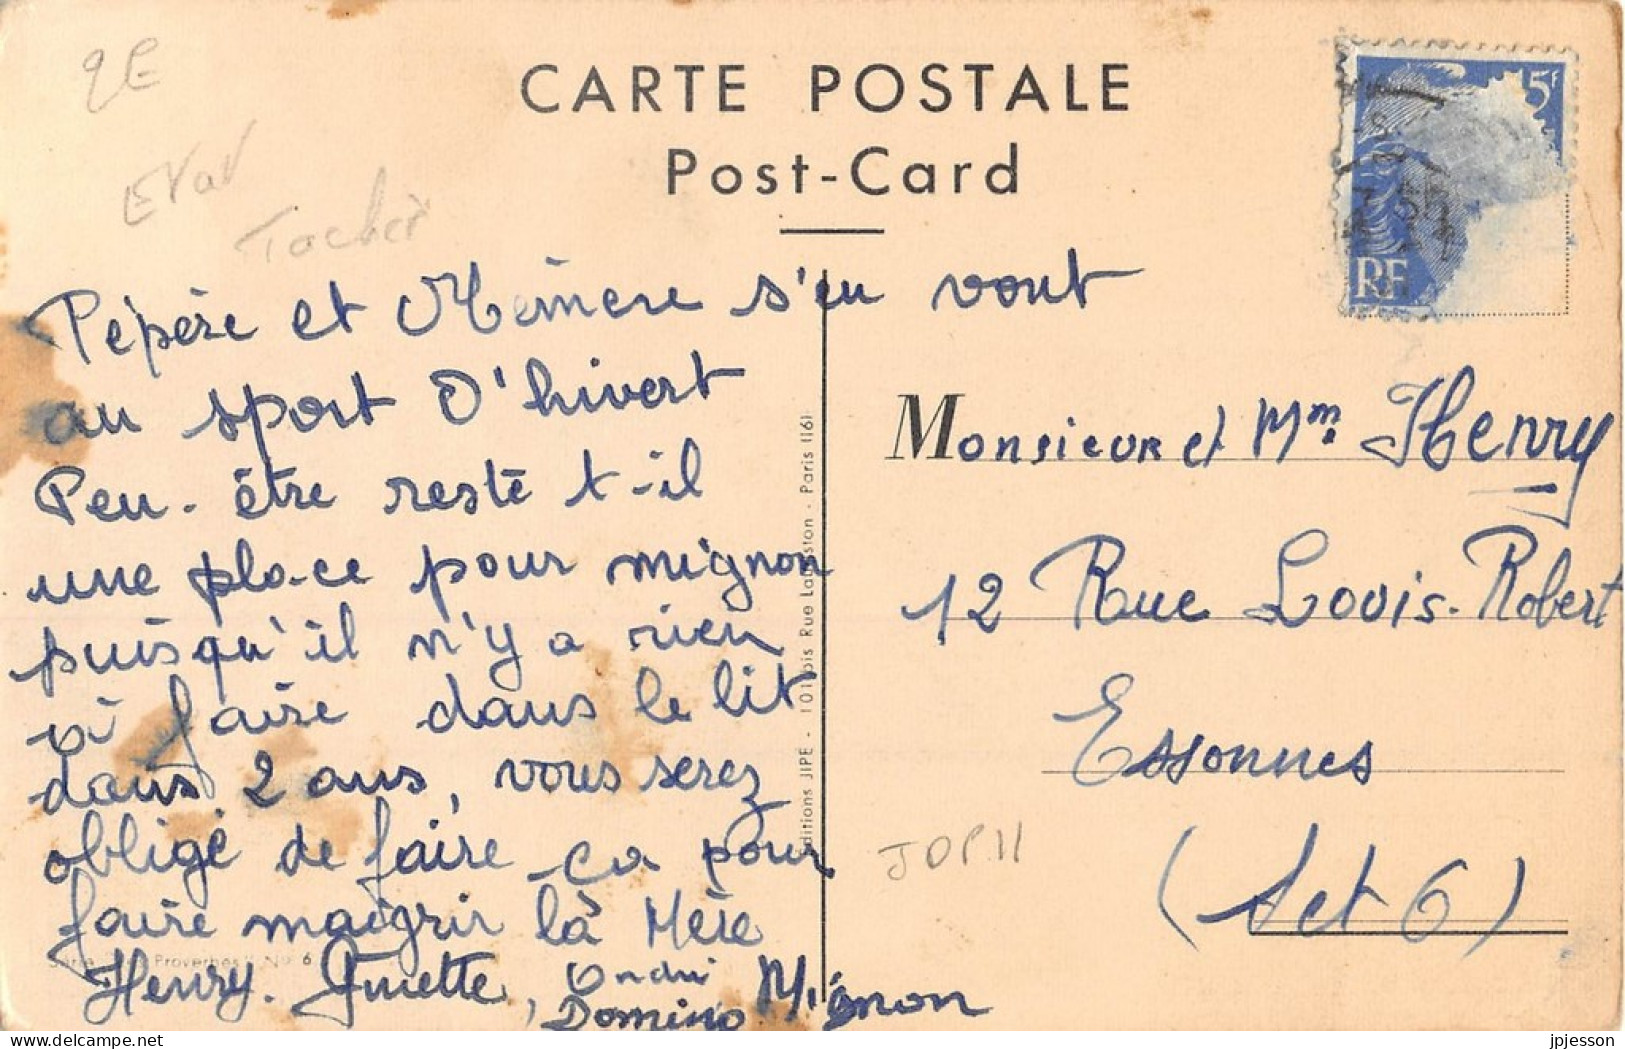 2E
CARTE POSTALE
Post-Card
5F
RF
Pépère et Mémère s'en vont
au sport d'hivert
Peu-être reste t-il
une place pour mignon
puisqu'il n'y a rien
à faire dans le lit
dans 2 ans, vous serez
obligé de faire ça pour
faire maigrir là Mère
Henry. Ginette, André
Domino Mignon
Série "Proverbes" No 6
Editions JIPE - 101 bis Rue Lauriston - Paris (16)
Monsieur et Mm. Henry
12 Rue Louis-Robert
Essonnes
(Set O)
jpjesson